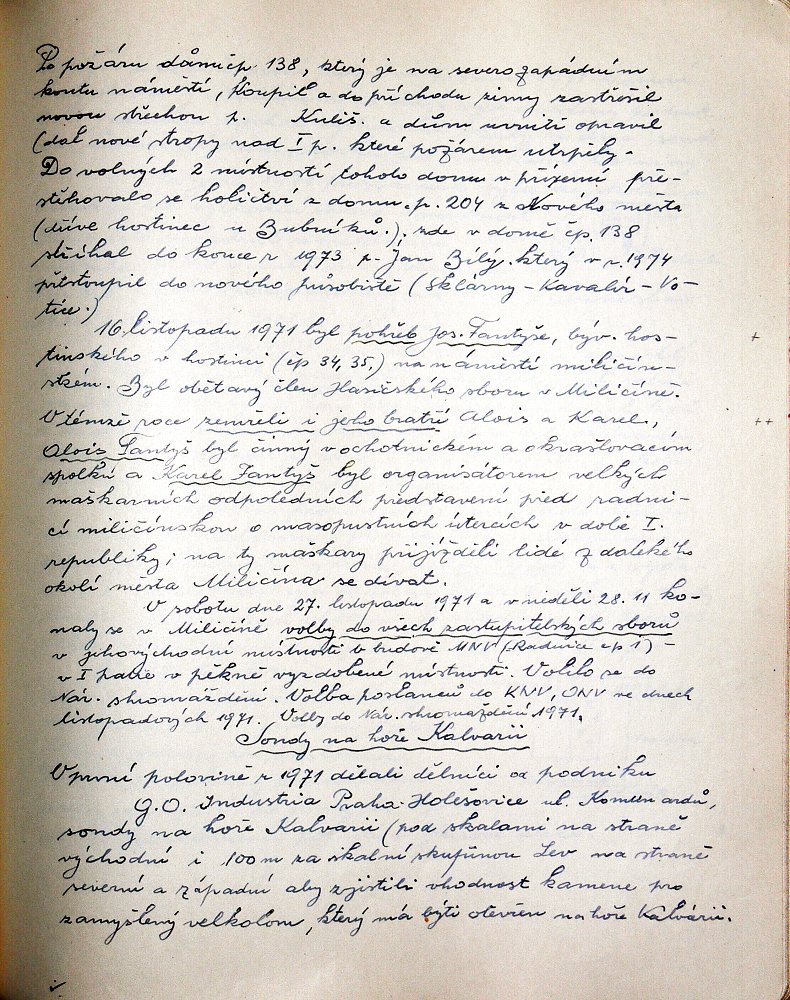 Po požáru dům čp. 138, který je na severozápadním
koutu náměstí, koupil a do příchodu zimy zastřešil
novou střechou p. Kuliš. a dům uvnitř opravil
(dal nové stropy nad I p. které požárem utrpěly.
Do volných 2 místností tohoto domu v přízemí pře-
stěhovalo se holičství z domu č.p. 204 z Nového města
(dříve hostinec u Bubníků.), zde v domě čp. 138
stříhal do konce r 1973 p. Jan Bílý. který v r. 1974
přestoupil do nového působiště (Sklárny - Kavalír - Vo-
tice.)
16. listopadu 1971 byl pohřeb Jos. Fantyše, býv. hos-
tinského v hostinci (čp 34, 35,) na náměstí miličín-
ském. Byl obětavý člen Hasičského sboru v Miličíně.
V témže roce zemřeli i jeho bratři Alois a Karel,
Alois Fantyš byl činný v ochotnickém a okrašlovacím
spolku a Karel Fantyš byl organisátorem velkých
maškarních odpoledních představení před radni-
cí miličínskou o masopustních útercích v době I.
republiky; na ty maškary přijížděli lidé z dalekého
okolí města Miličína se dívat.
V sobotu dne 27. listopadu 1971 a v neděli 28. 11 ko-
naly se v Miličíně volby do všech zastupitelských sborů
v jihovýchodní místnosti v budově MNV (Radnice čp 1) -
v I patře v pěkně vyzdobené místnosti. Volilo se do
Nár. shromáždění. Volba poslanců do KNV, ONV ve dnech
listopadových 1971. Volby do Nár. shromáždění 1971.
Sondy na hoře Kalvarii
V první polovině r 1971 dělali dělníci od podniku
G.O. Industria Praha-Holešovice ul. Komunardů,
sondy na hoře Kalvarii (pod skalami na straně
východní i 100 m za skalní skupinou Lev na straně
severní a západní aby zjistili vhodnost kamene pro
zamyšlený velkolom, který má býti otevřen na hoře Kalvárii.